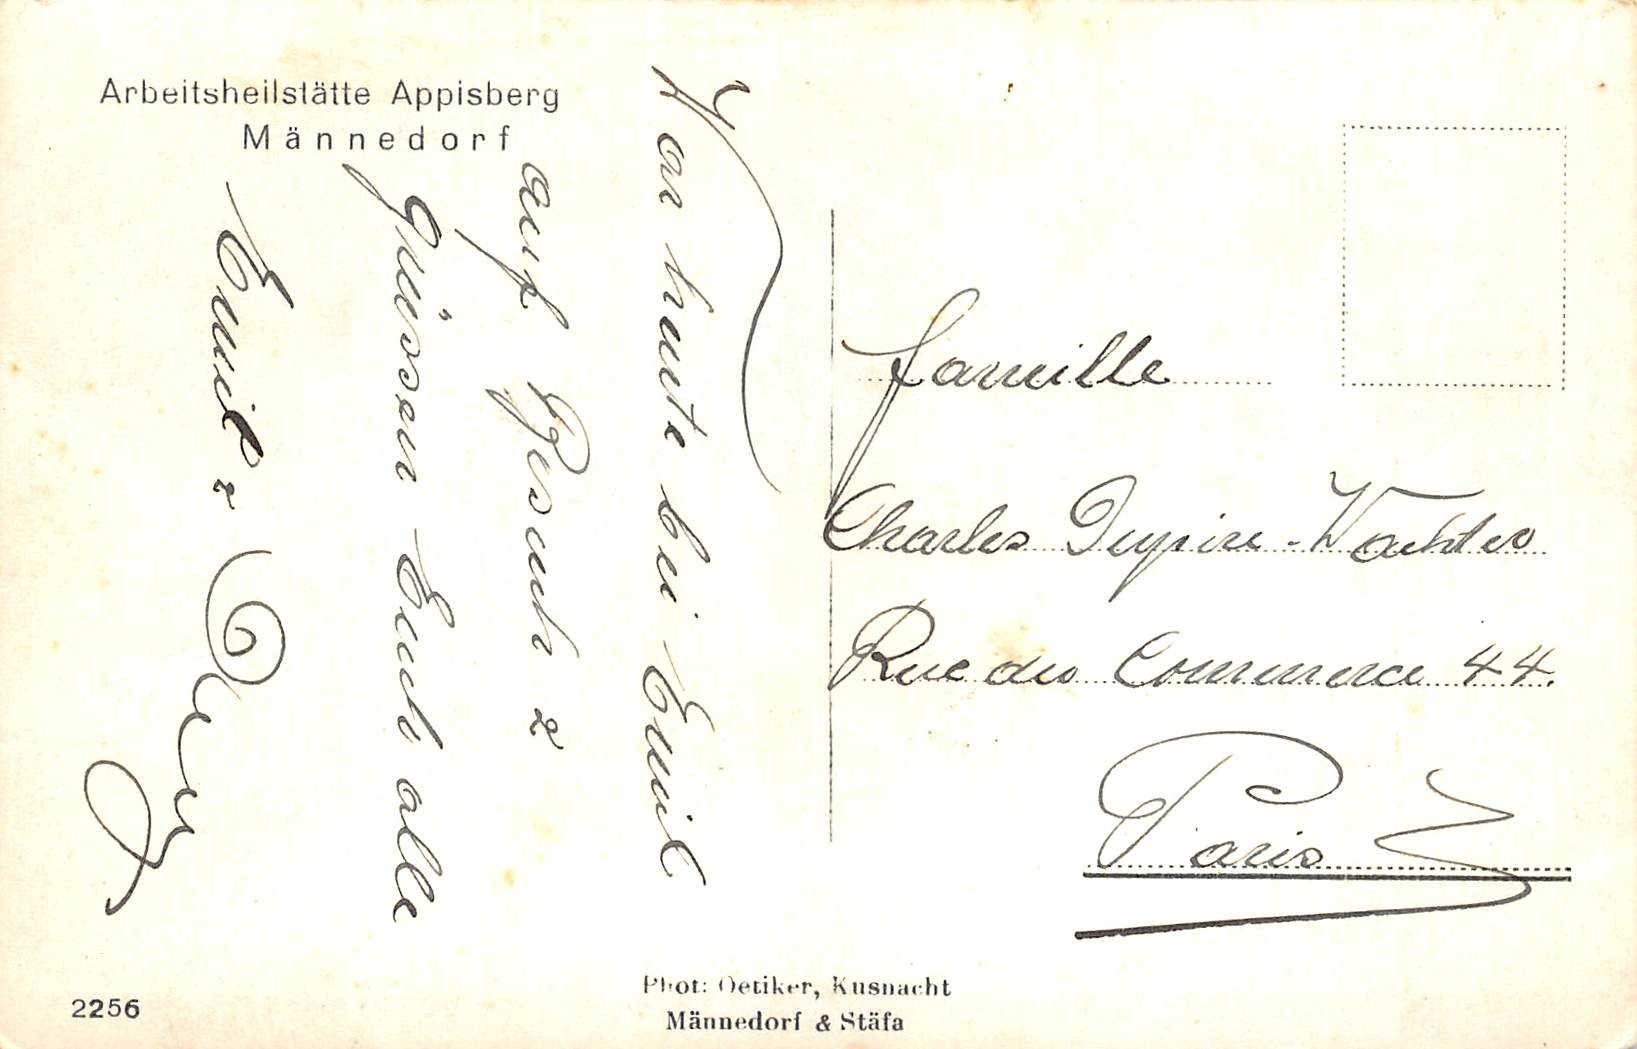 Arbeitsheilstätte Appisberg
Männedorf
War heute bei Emil
auf Besuch &
grüssen Euch alle
Emil &
Famille
Charles Dupire-Wachter
Rue du Commerce 44.
Paris
2256
Phot: Oetiker, Kusnacht
Männedorf & Stäfa